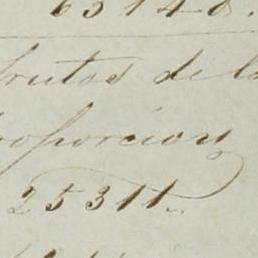 63148.
frutos de la
roporcion
25311..